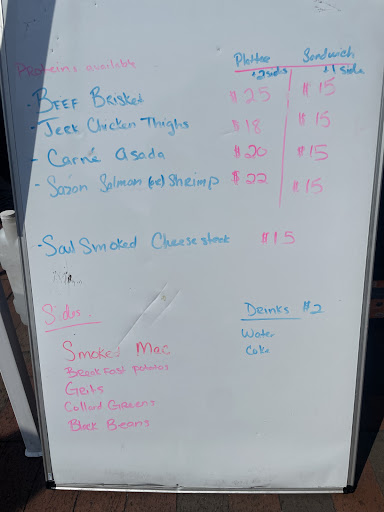 Plattee Sandwich
Proteins available +2 sides +1 side
- BEEF Brisket $25 $15
- Jerk Chicken Thighs $18 $15
- Carne asada $20 $15
- Sazon Salmon (or) Shrimp $22 $15
- Soul Smoked Cheese steak $15
Sides Drinks $2
Smoked Mac Water
Breakfast potatos Coke
Grits
Collard Greens
Black Beans